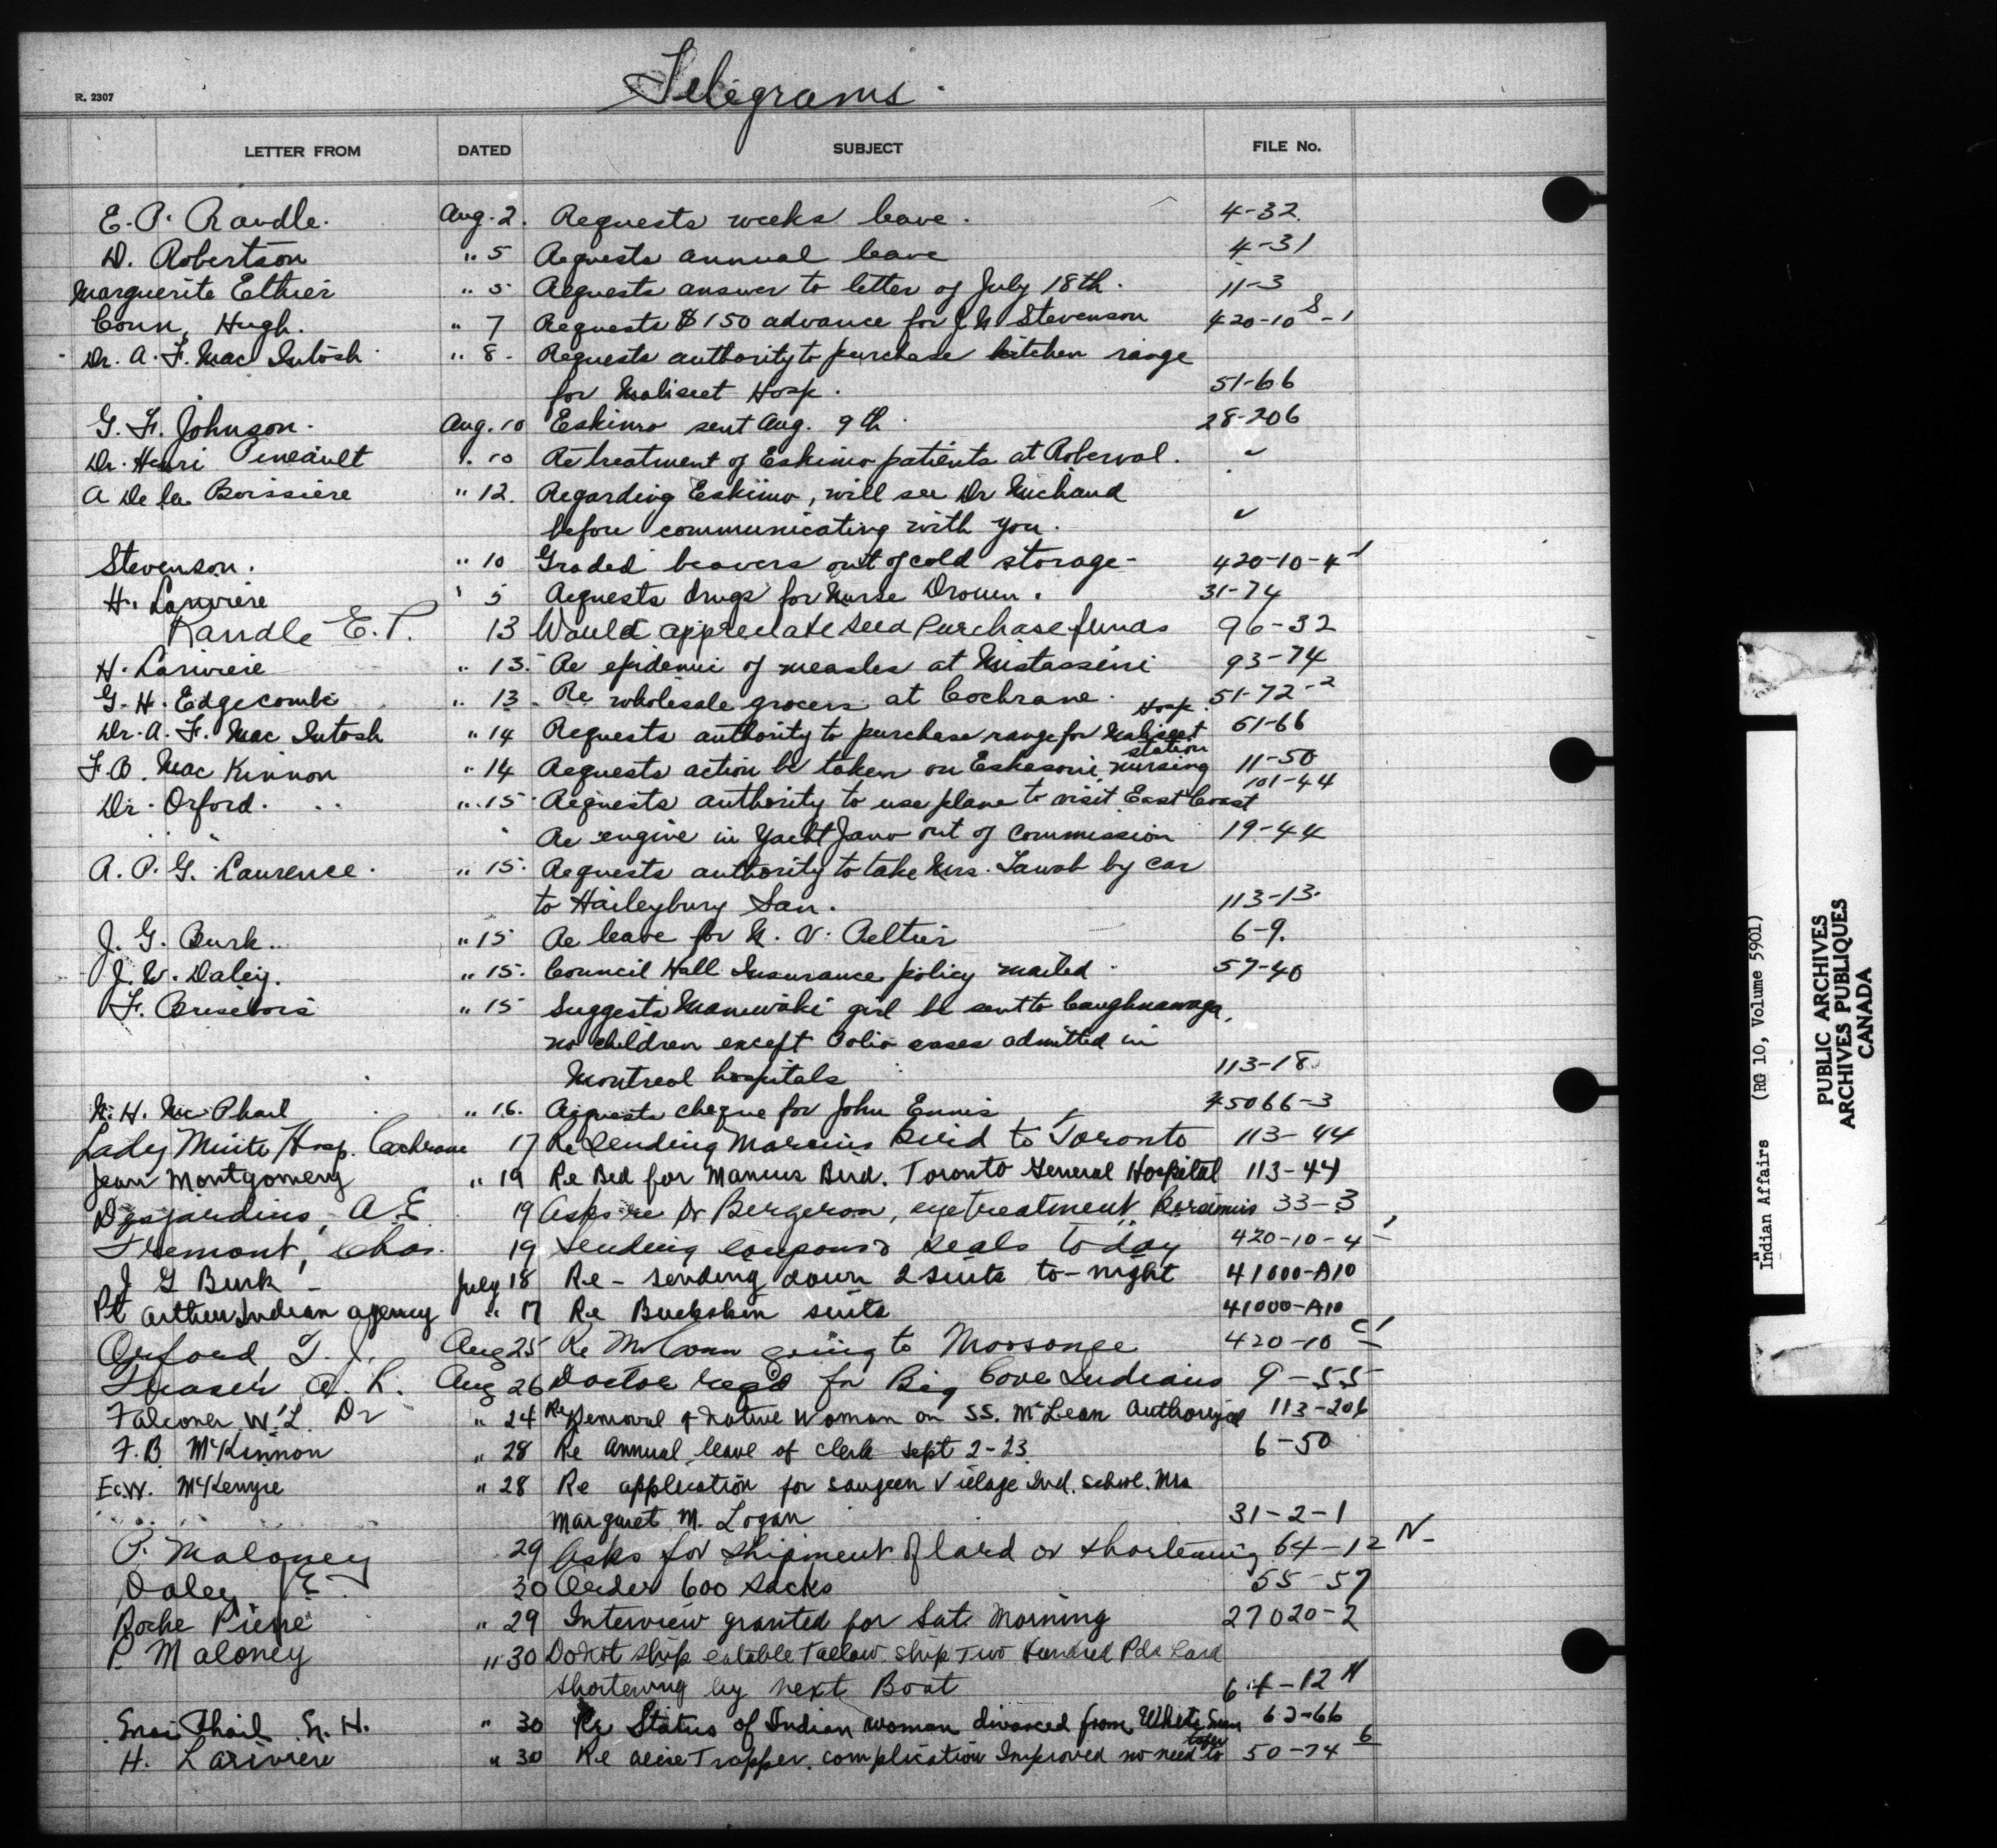 Telegrams
R. 2307
LETTER FROM DATED SUBJECT FILE No.
E. P. Randle. Aug. 2. Requests weeks leave. 4-32
D. Robertson " 5 Requests annual leave 4-31
Marguerite Ethier " 5 Requests answer to letter of July 18th. 11-3
Conn, Hugh. " 7 Requests $150 advance for J. N. Stevenson 420-10 S-1
Dr. A. F. MacIntosh " 8. Requests authority to purchase kitchen range
for Maliseet Hosp. 51-66
G. F. Johnson. Aug. 10 Eskimo sent Aug. 9th 28-206
Dr. Henri Pineault " 10 Re treatment of Eskimo patients at Roberval. "
A De la Boissiere " 12. Regarding Eskimo, will see Dr Michaud
before communicating with you. "
Stevenson. " 10 Graded beavers out of cold storage- 420-10-4-1
H. Lariviere " 5 Requests drugs for Nurse Drouin. 31-74
Randle E. P. 13 Would appreciate seed purchase funds 96-32
H. Lariviere " 13. Re epidemic of measles at Mistassini 93-74
G. H. Edgecombe " 13. Re wholesale grocers at Cochrane. 51-72-2
Dr. A. F. MacIntosh " 14 Requests authority to purchase range for Maliseet Hosp. 51-66
F. B. MacKinnon " 14 Requests action be taken on Eskasoni nursing station 11-50
Dr. Orford. " 15 Requests authority to use plane to visit East Coast 101-44
" " " Re engine in Yacht Jano out of commission 19-44
A. P. G. Laurence. " 15. Requests authority to take Mrs. by car
to Haileybury San. 113-13
J. G. Burk.. " 15 Re leave for N. V. Peltier 6-9.
J. W. Daley. " 15. Council Hall Insurance policy mailed. 57-40
F. Brisebois " 15 Suggests Maniwaki girl be sent to Caughnawaga,
no children except Polio cases admitted in
Montreal hospitals 113-18
N. H. McPhail " 16. Requests cheque for John Ennis 45066-3
Lady Minto Hosp. Cochrane 17 Re sending Marcus Bird to Toronto 113-44
Jean Montgomery " 19 Re Bed for Marcus Bird. Toronto General Hospital 113-44
Desjardins, A. E. 19 Asks re Dr Bergeron, eye treatment Bersimis 33-3
Fremont, Chas. 19 Sending coupons & seals today 420-10-4-1
J G Burk - July 18 Re - sending down 2 suits to-night 41000-A10
Pt Arthur Indian agency " 17 Re Buckskin suits 41000-A10
Orford, T. J. Aug 25 Re Mr Conn going to Moosonee 420-10 C1
Fraser, A. R. Aug 26 Doctor reqd for Big Cove Indians 9-55
Falconer W. L. Dr " 24 Re Removal of native Woman on SS. McLean Authorized 113-206
F. B. McKinnon " 28 Re annual leave of clerk Sept 2-23 6-50
E. W. McKenzie " 28 Re application for Saugeen Village Ind. School. Mrs
Margaret M. Logan 31-2-1
P. Maloney 29 Asks for shipment of lard or shortening 64-12 N-
Daley E. 30 Order 600 sacks 55-57
Roche Pierre " 29 Interview granted for Sat. Morning 27020-2
P. Maloney " 30 Do not ship eatable Tallow. Ship Two Hundred Pds Lard
shortening by next Boat 64-12 N
Phail N. H. " 30 Re Status of Indian woman divorced from White man 62-66
H. Lariviere " 30 Re Trapper. complication Improved no need to 50-74 6
Indian Affairs (RG 10, Volume 5901)
PUBLIC ARCHIVES
ARCHIVES PUBLIQUES
CANADA